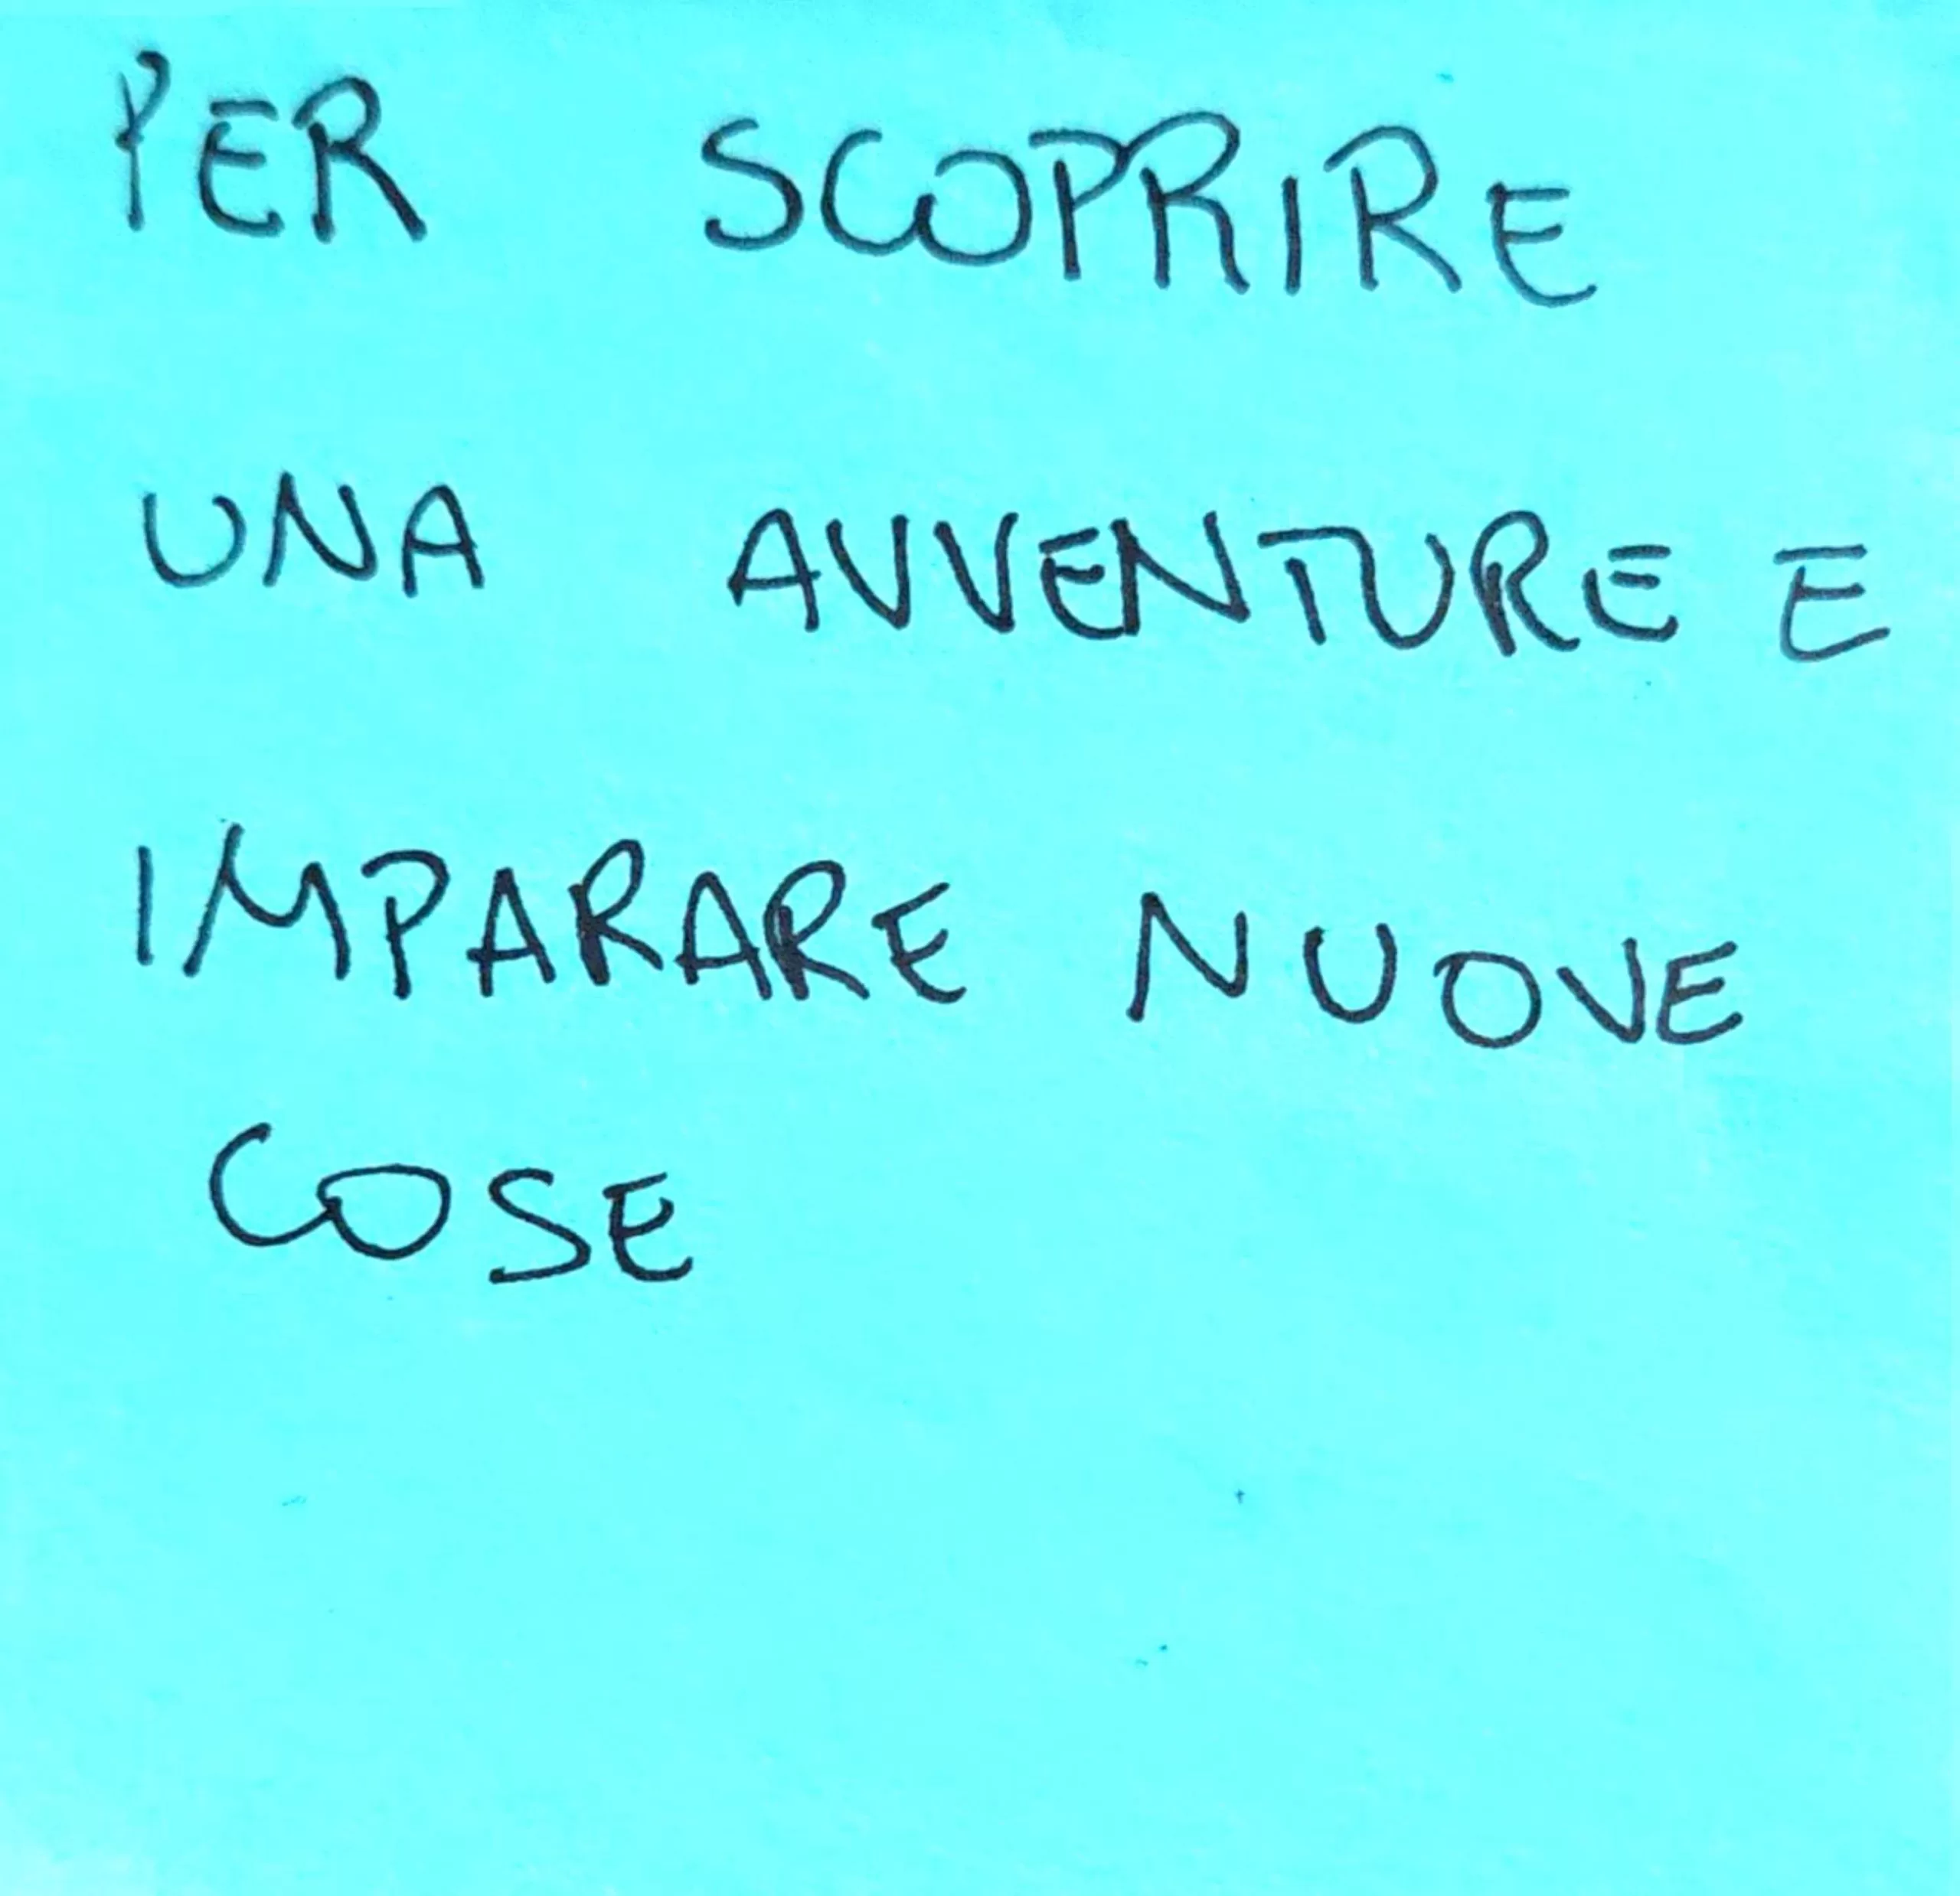 PER SCOPRIRE
UNA AVVENTURE E
IMPARARE NUOVE
COSE